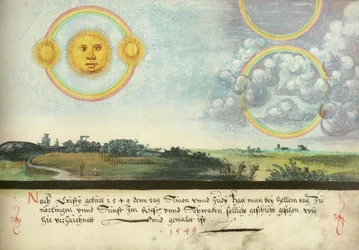 Nach Cristy geburt 1549 dem tag Simon vnnd Judj Hatt man bey hellem tag Zu
nörlingen vnnd Sunst Jm Rieß vnnd Schwaben solliche geschicht gesehen wie
hie verzaichnett vnnd gemalet ist
1549